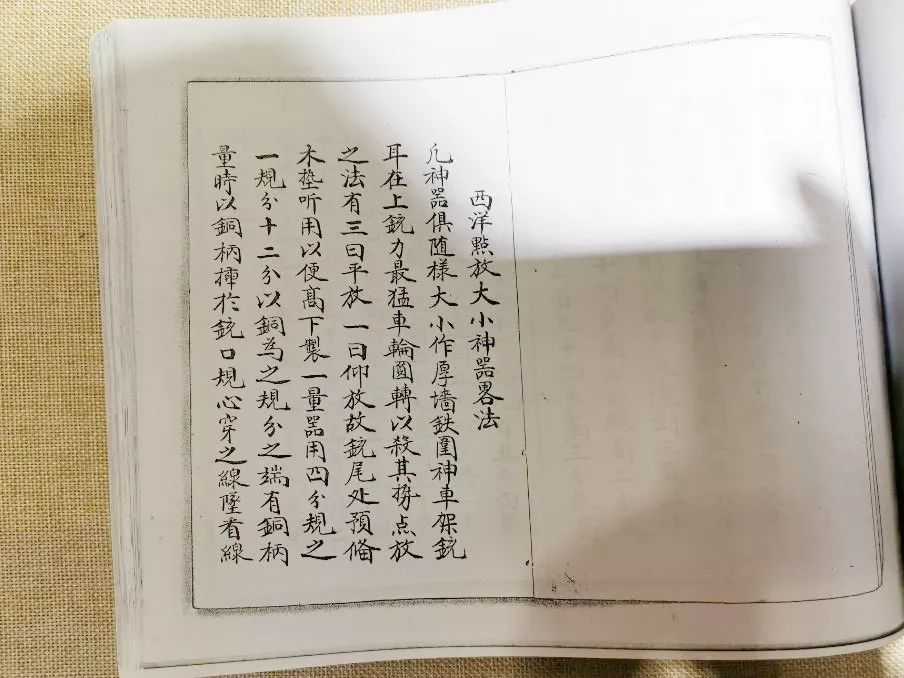 西洋點放大小神器畧法
凢神器俱随様大小作厚墻鉄圍神車架銃
耳在上銃力最猛車輪圓轉以殺其势点放
之法有三曰平放一曰仰放故銃尾处預俻
木墊听用以便髙下製一量器用四分規之
一規分十二分以銅為之規分之端有銅柄
量時以銅柄揷於銃口規心穿之線墜看線